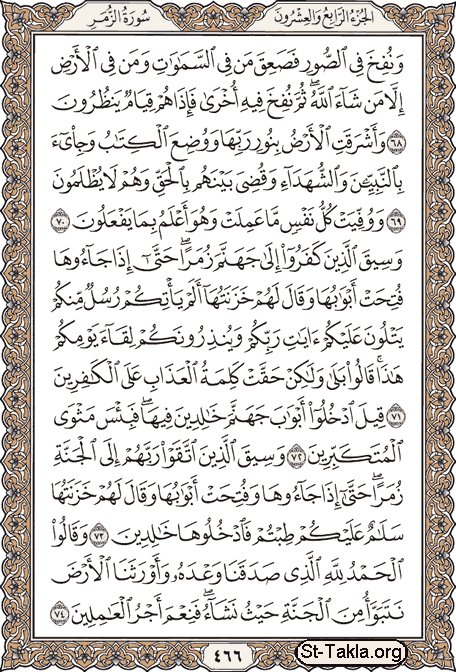 الجزء الرابع والعشرون
سورة الزمر
وَنُفِخَ فِي ٱلصُّورِ فَصَعِقَ مَن فِي ٱلسَّمَٰوَٰتِ وَمَن فِي ٱلۡأَرۡضِ
إِلَّا مَن شَآءَ ٱللَّهُۖ ثُمَّ نُفِخَ فِيهِ أُخۡرَىٰ فَإِذَا هُمۡ قِيَامٞ يَنظُرُونَ
٦٨ وَأَشۡرَقَتِ ٱلۡأَرۡضُ بِنُورِ رَبِّهَا وَوُضِعَ ٱلۡكِتَٰبُ وَجِاْيٓءَ
بِٱلنَّبِيِّـۧنَ وَٱلشُّهَدَآءِ وَقُضِيَ بَيۡنَهُم بِٱلۡحَقِّ وَهُمۡ لَا يُظۡلَمُونَ
٦٩ وَوُفِّيَتۡ كُلُّ نَفۡسٖ مَّا عَمِلَتۡ وَهُوَ أَعۡلَمُ بِمَا يَفۡعَلُونَ ٧٠
وَسِيقَ ٱلَّذِينَ كَفَرُوٓاْ إِلَىٰ جَهَنَّمَ زُمَرًاۖ حَتَّىٰٓ إِذَا جَآءُوهَا
فُتِحَتۡ أَبۡوَٰبُهَا وَقَالَ لَهُمۡ خَزَنَتُهَآ أَلَمۡ يَأۡتِكُمۡ رُسُلٞ مِّنكُمۡ
يَتۡلُونَ عَلَيۡكُمۡ ءَايَٰتِ رَبِّكُمۡ وَيُنذِرُونَكُمۡ لِقَآءَ يَوۡمِكُمۡ
هَٰذَاۚ قَالُواْ بَلَىٰ وَلَٰكِنۡ حَقَّتۡ كَلِمَةُ ٱلۡعَذَابِ عَلَى ٱلۡكَٰفِرِينَ
٧١ قِيلَ ٱدۡخُلُوٓاْ أَبۡوَٰبَ جَهَنَّمَ خَٰلِدِينَ فِيهَاۖ فَبِئۡسَ مَثۡوَى
ٱلۡمُتَكَبِّرِينَ ٧٢ وَسِيقَ ٱلَّذِينَ ٱتَّقَوۡاْ رَبَّهُمۡ إِلَى ٱلۡجَنَّةِ
زُمَرًاۖ حَتَّىٰٓ إِذَا جَآءُوهَا وَفُتِحَتۡ أَبۡوَٰبُهَا وَقَالَ لَهُمۡ خَزَنَتُهَا
سَلَٰمٌ عَلَيۡكُمۡ طِبۡتُمۡ فَٱدۡخُلُوهَا خَٰلِدِينَ ٧٣ وَقَالُواْ
ٱلۡحَمۡدُ لِلَّهِ ٱلَّذِي صَدَقَنَا وَعۡدَهُۥ وَأَوۡرَثَنَا ٱلۡأَرۡضَ
نَتَبَوَّأُ مِنَ ٱلۡجَنَّةِ حَيۡثُ نَشَآءُۖ فَنِعۡمَ أَجۡرُ ٱلۡعَٰمِلِينَ ٧٤
٤٦٦
St-Takla.org